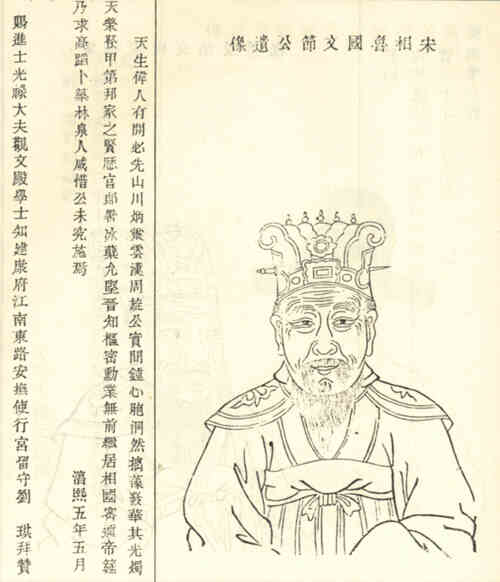 宋相魯國文節公遺像
天生偉人有開必先山川炳靈雲漢周旋公實間鐘心胞洞然摛藻發華其光燭
天榮登甲第邦家之賢歷官郎署冰蘗尤堅晉知樞密勳業無前繼居相國帝筵
乃求高蹈卜築林泉人咸惜公未究施焉 湻熙五年五月
賜進士光祿大夫觀文殿學士知建康府江南東路安撫使行宮留守劉 珙拜贊